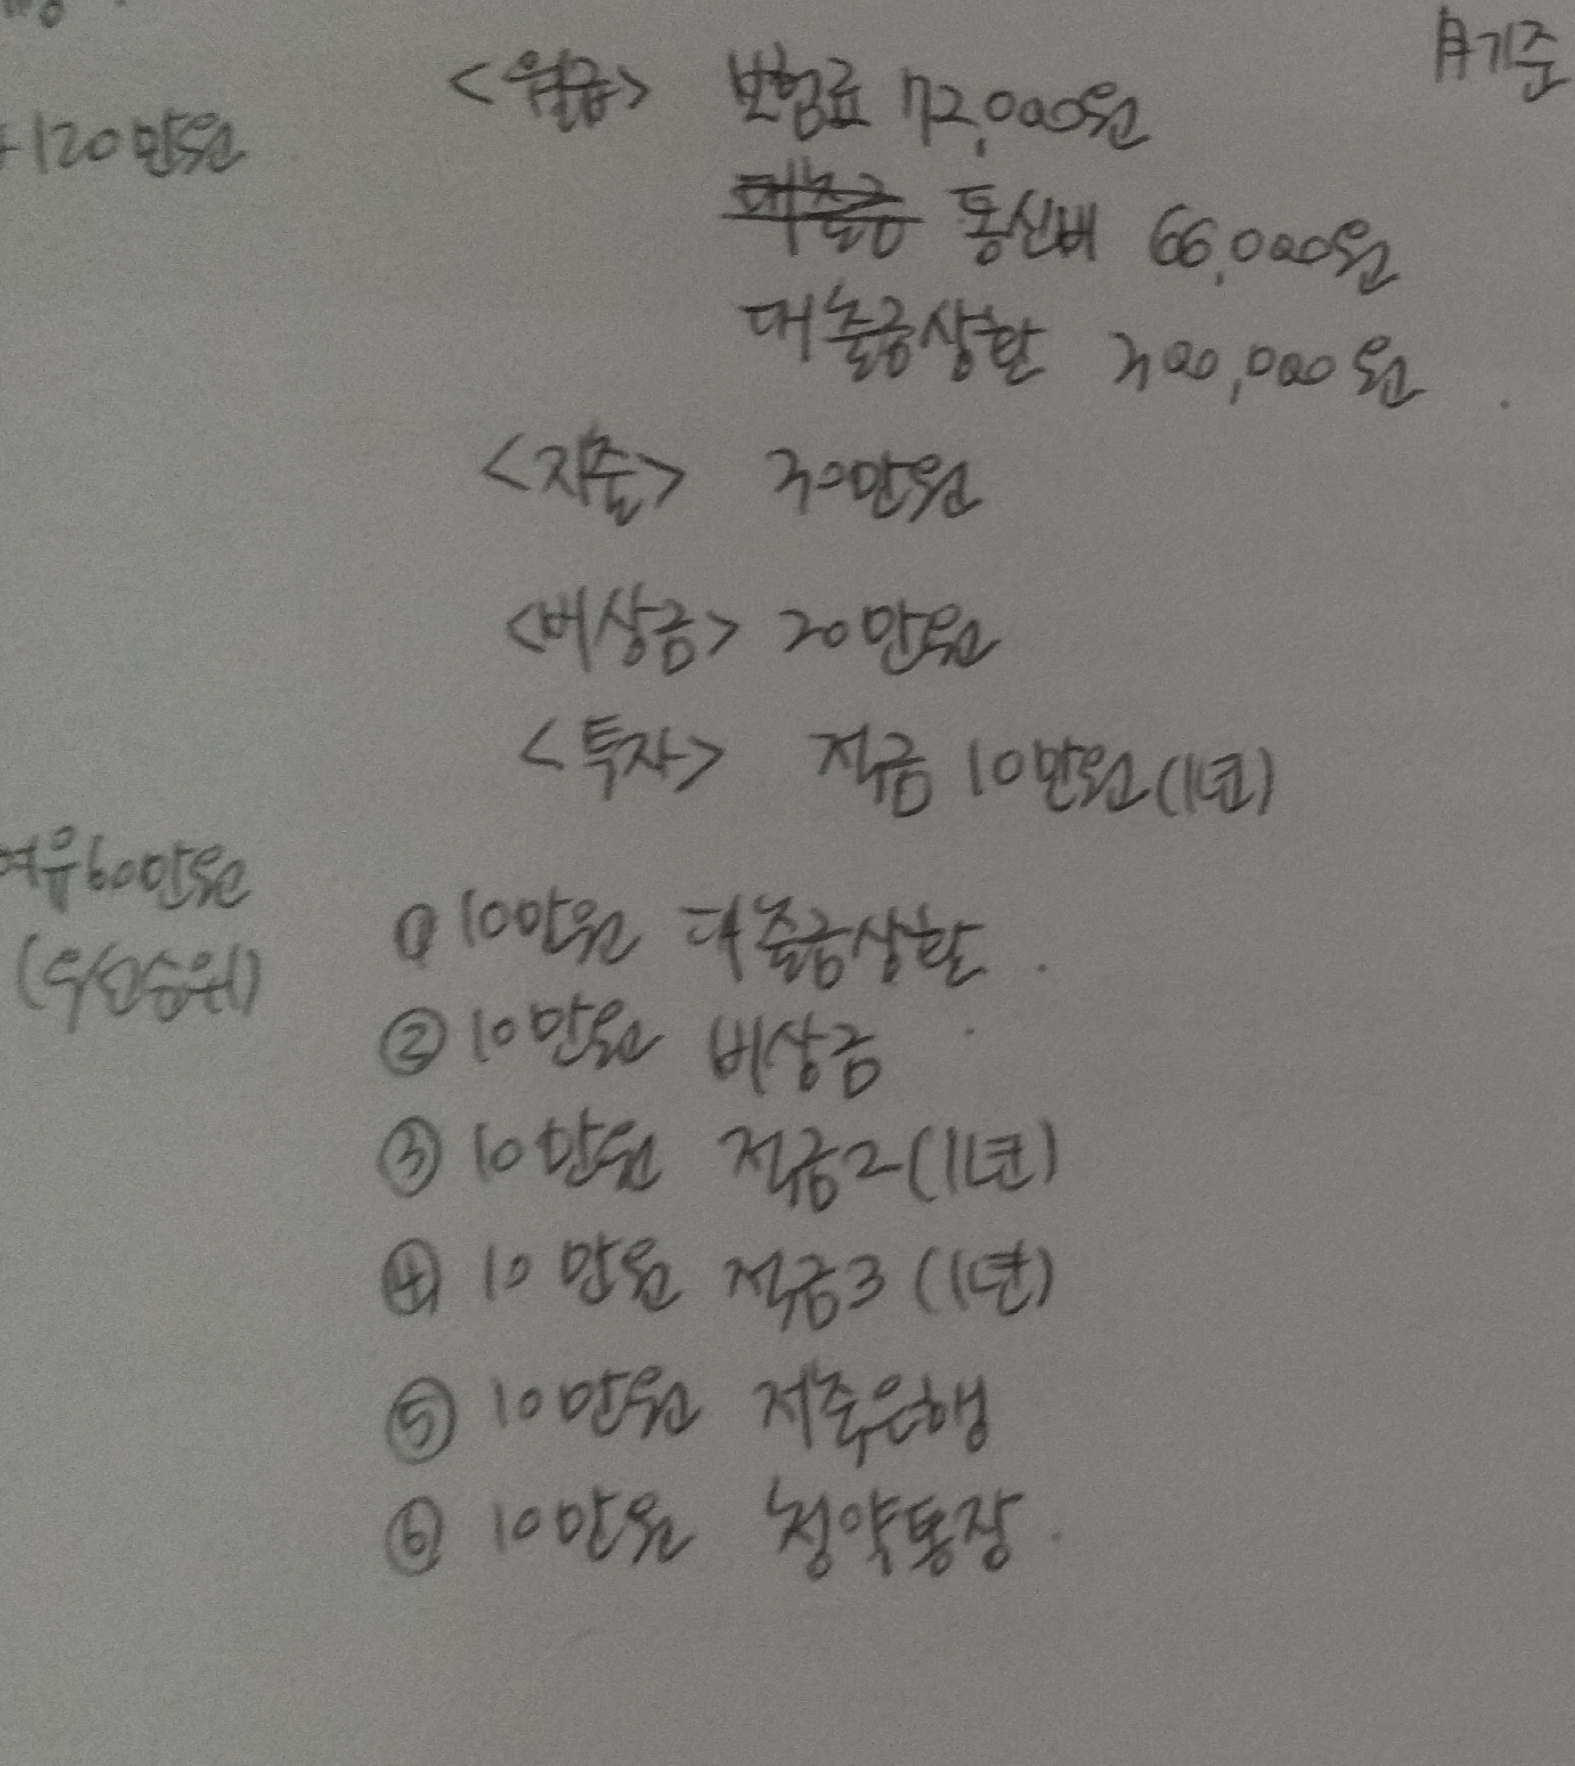 月기준
<월급> 보험료 72,000원
120만원
통신비 66,000원
대출금상환 300,000원
<지출> 30만원
<비상금> 20만원
<투자> 적금 10만원(1년)
여유60만원
(우선순위)
① 10만원 대출금상환
② 10만원 비상금
③ 10만원 적금2(1년)
④ 10만원 적금3(1년)
⑤ 10만원 저축은행
⑥ 10만원 청약통장